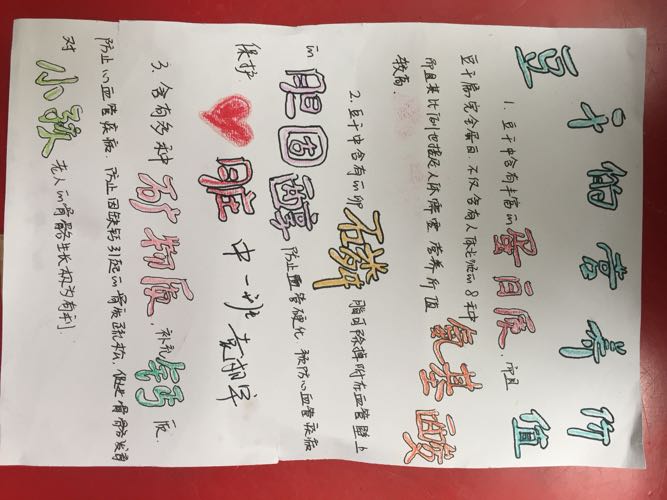 豆干的营养价
值
1.豆干中含有丰富的蛋白质,而且
豆干属完全蛋白,不仅含有人体必需的8种氨基酸
而且其比例也接近人体需要,营养价值
较高.
2.豆干中含有的卵磷脂可除掉附在血管壁上
的胆固醇,防止血管硬化,预防心血管疾病,
保护❤脏 中一班
3.含有多种矿物质,补充钙质,
防止心血管疾病.防止因缺钙引起的骨质疏松,促进骨骼发育
对小孩,老人的骨骼生长极为有利.